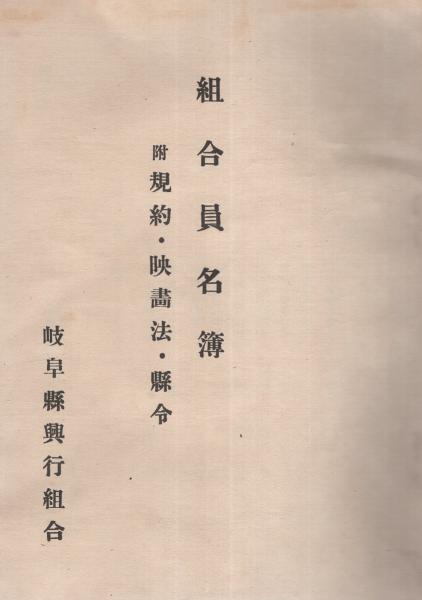 組合員名簿
附規約・映畵法・縣令
岐阜縣興行組合